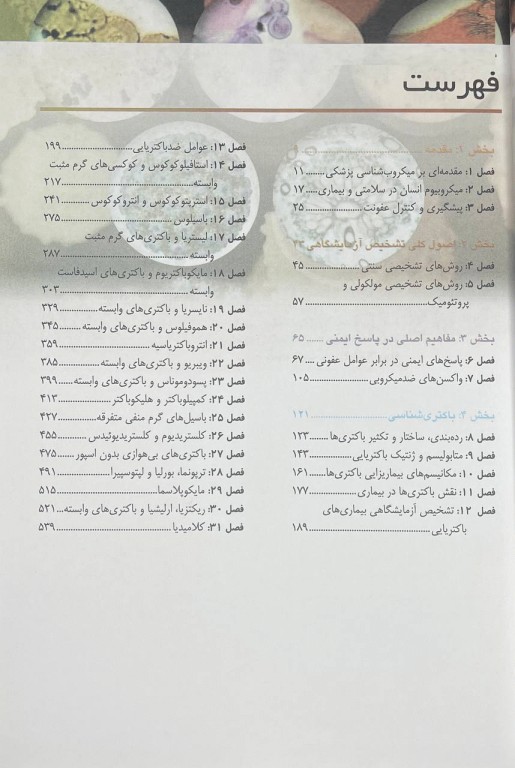 فهرست
بخش ۱: مقدمه ........ ۹
فصل ۱: مقدمه‌ای بر میکروب‌شناسی پزشکی ........ ۱۱
فصل ۲: میکروبیوم انسان در سلامتی و بیماری ..... ۱۷
فصل ۳: پیشگیری و کنترل عفونت ........ ۲۵
بخش ۲: اصول کلی تشخیص آزمایشگاهی ۴۳
فصل ۴: روش‌های تشخیصی سنتی ........ ۴۵
فصل ۵: روش‌های تشخیصی مولکولی و
پروتئومیک ........ ۵۷
بخش ۳: مفاهیم اصلی در پاسخ ایمنی ...... ۶۵
فصل ۶: پاسخ‌های ایمنی در برابر عوامل عفونی .... ۶۷
فصل ۷: واکسن‌های ضدمیکروبی ........ ۱۰۵
بخش ۴: باکتری‌شناسی ........ ۱۲۱
فصل ۸: رده‌بندی، ساختار و تکثیر باکتری‌ها ........ ۱۲۳
فصل ۹: متابولیسم و ژنتیک باکتریایی ........ ۱۴۳
فصل ۱۰: مکانیسم‌های بیماریزایی باکتری‌ها ........ ۱۶۱
فصل ۱۱: نقش باکتری‌ها در بیماری ........ ۱۷۷
فصل ۱۲: تشخیص آزمایشگاهی بیماری‌های
باکتریایی ........ ۱۸۹
فصل ۱۳: عوامل ضدباکتریایی ........ ۱۹۹
فصل ۱۴: استافیلوکوکوس و کوکسی‌های گرم مثبت
وابسته ........ ۲۱۷
فصل ۱۵: استرپتوکوکوس و انتروکوکوس ........ ۲۴۱
فصل ۱۶: باسیلوس ........ ۲۷۵
فصل ۱۷: لیستریا و باکتری‌های گرم مثبت
وابسته ........ ۲۸۷
فصل ۱۸: مایکوباکتریوم و باکتری‌های اسیدفاست
وابسته ........ ۳۰۳
فصل ۱۹: نایسریا و باکتری‌های وابسته ........ ۳۲۹
فصل ۲۰: هموفیلوس و باکتری‌های وابسته ........ ۳۴۵
فصل ۲۱: انتروباکتریاسیه ........ ۳۵۹
فصل ۲۲: ویبریو و باکتری‌های وابسته ........ ۳۸۵
فصل ۲۳: پسودوموناس و باکتری‌های وابسته ...... ۳۹۹
فصل ۲۴: کمپیلوباکتر و هلیکوباکتر ........ ۴۱۳
فصل ۲۵: باسیل‌های گرم منفی متفرقه ........ ۴۲۷
فصل ۲۶: کلستریدیوم و کلستریدیوئیدس ........ ۴۵۵
فصل ۲۷: باکتری‌های بی‌هوازی بدون اسپور ....... ۴۷۵
فصل ۲۸: ترپونما، بورلیا و لپتوسپیرا ........ ۴۹۱
فصل ۲۹: مایکوپلاسما ........ ۵۱۵
فصل ۳۰: ریکتزیا، ارلیشیا و باکتری‌های وابسته ... ۵۲۱
فصل ۳۱: کلامیدیا ........ ۵۳۹